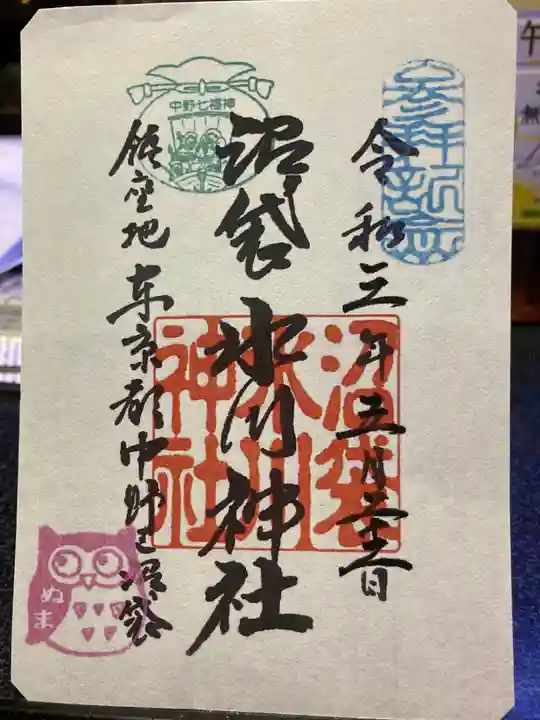 参拝記念
令和三年五月
日
沼袋氷川神社
沼袋
氷川
神社
中野七福神
鎮座地 東京都中野区沼袋
ぬま
午
無